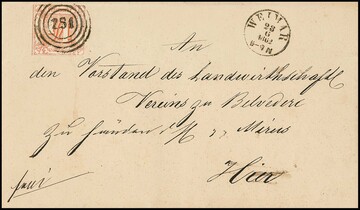 251
WEIMAR
28
6
1862
An
den Vorstand des Landwirthschaftl
Vereins zu Belvedere
Zu Händen d. H Mirus
Hier
frei